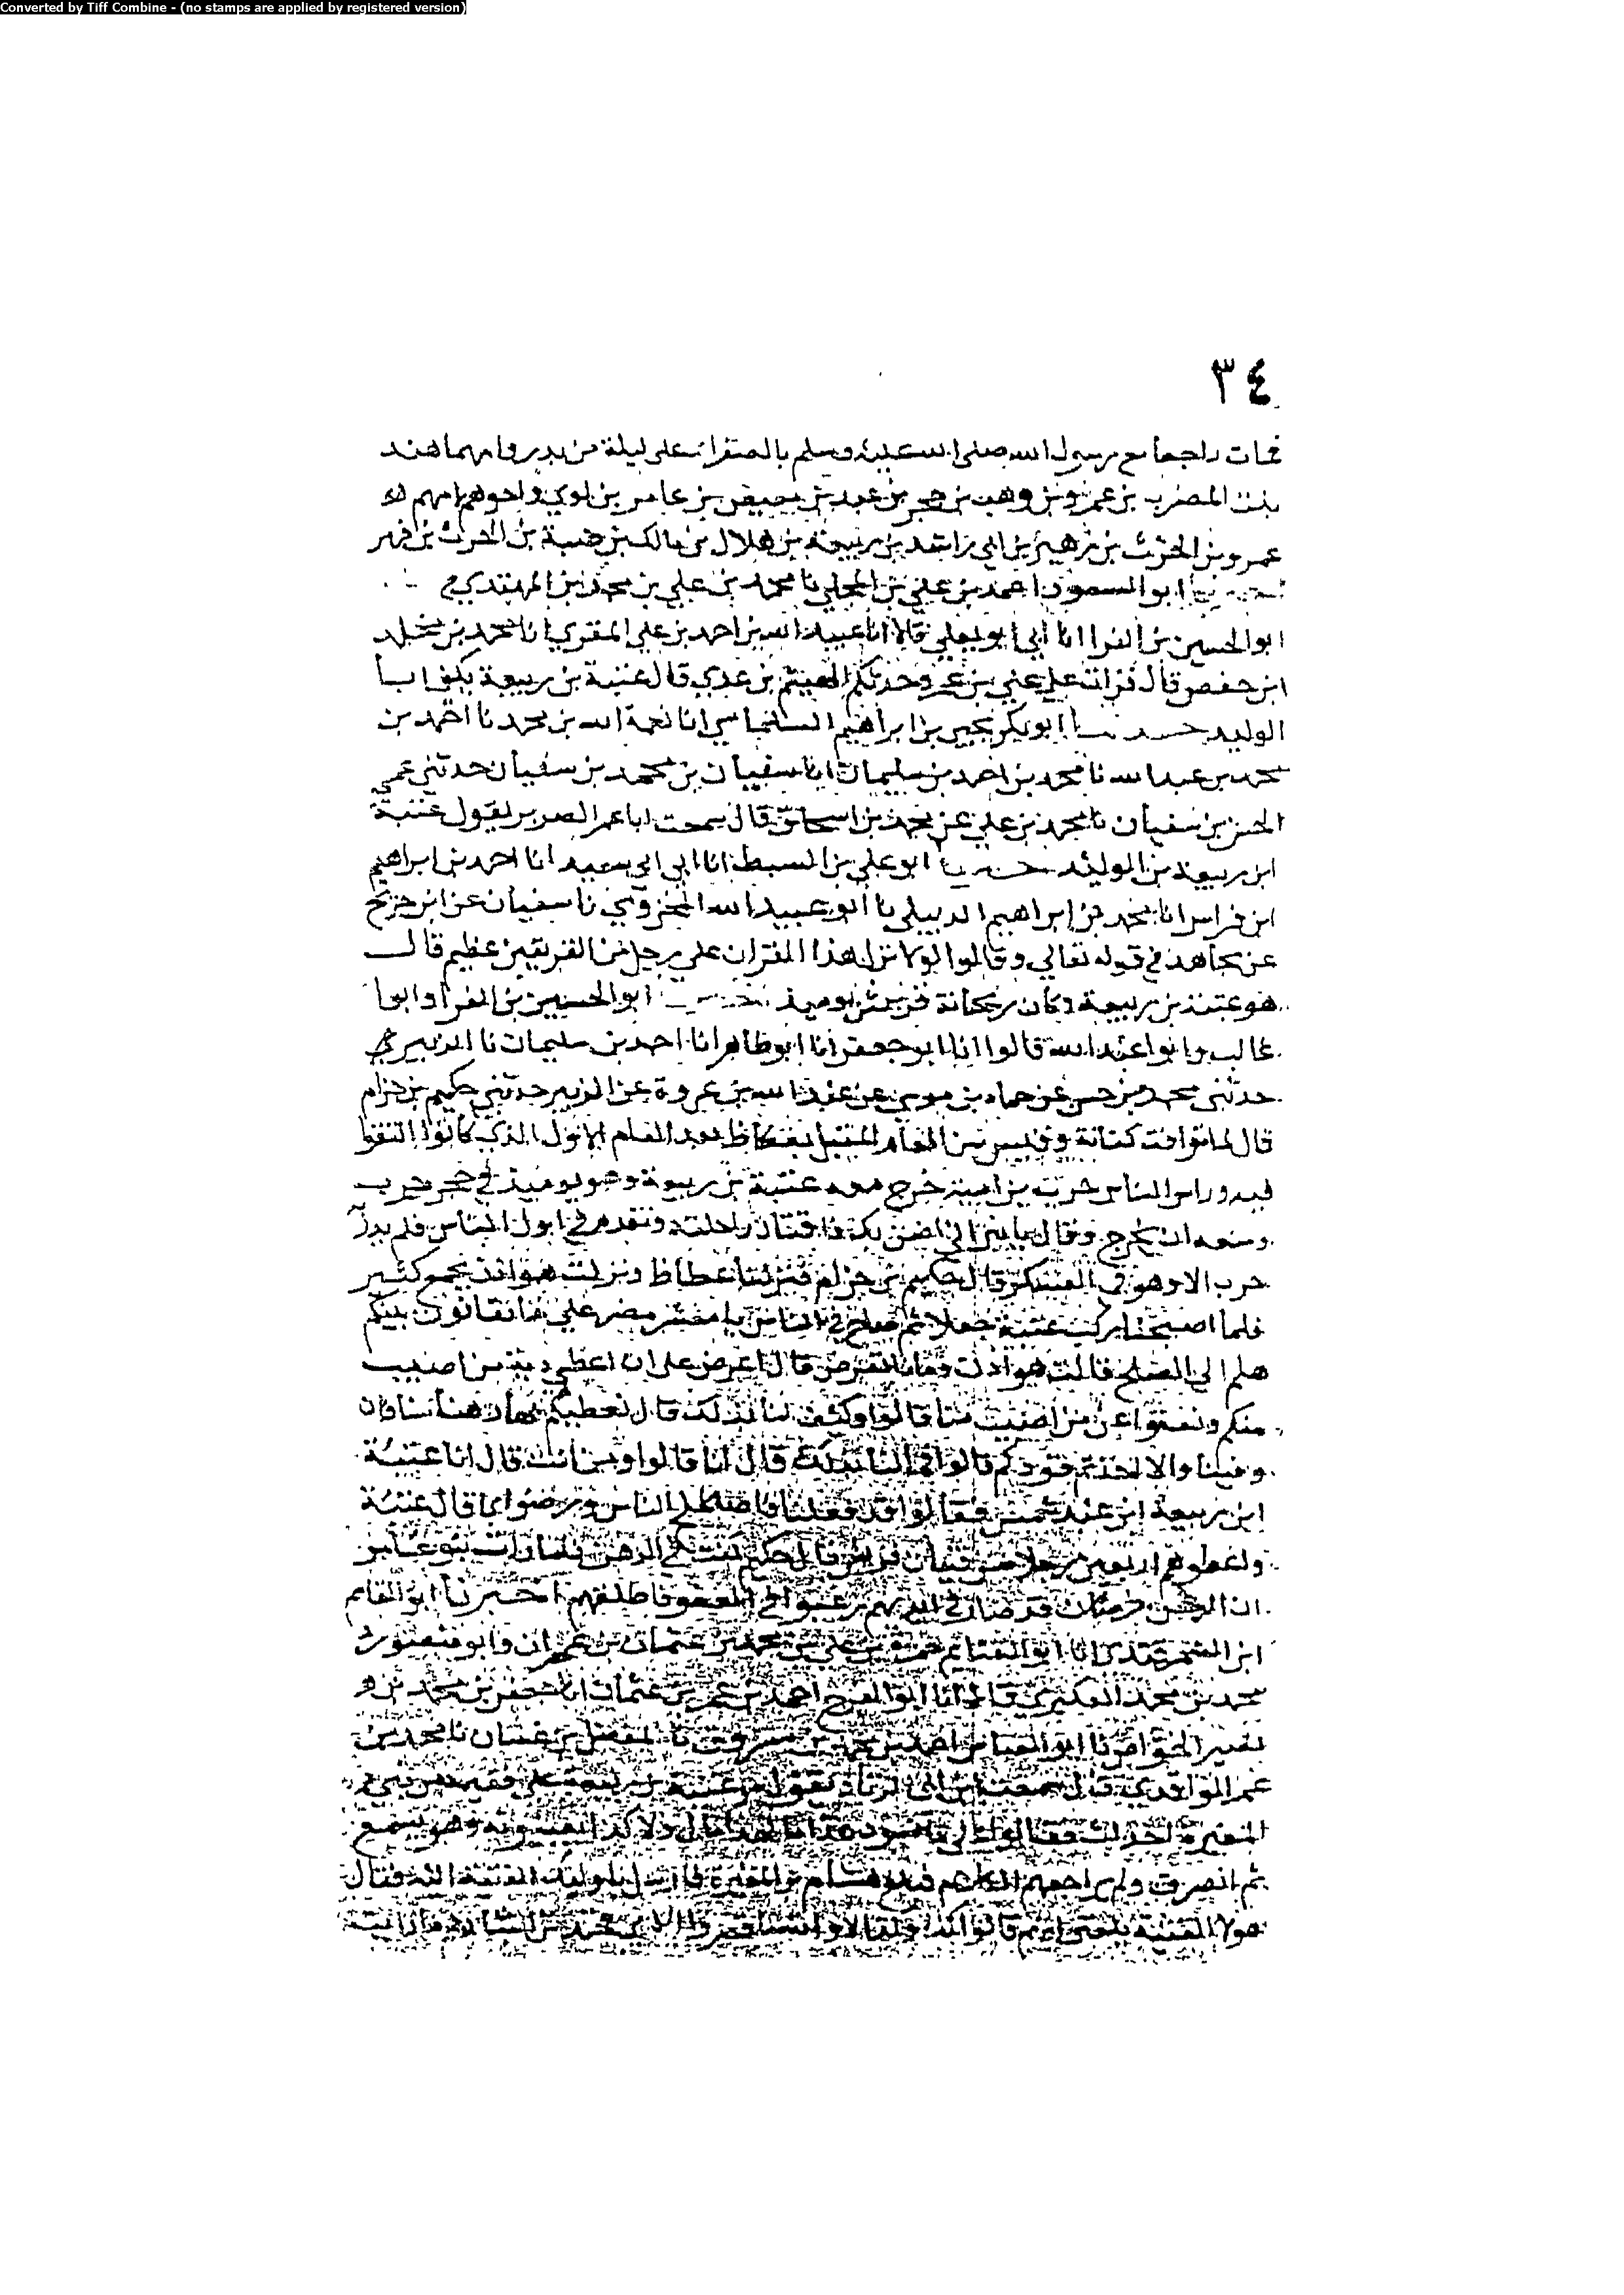 Converted by Tiff Combine - (no stamps are applied by registered version)
٣٤
فمات راجعا مع رسول الله صلى الله عليه وسلم بالصفراء على ليلة من بدر وامهما هند
بنت المضرب بن عمرو بن وهب بن حجير بن عبد بن معيص بن عامر بن لوي واخوهم لامهم
عمرو بن الحرث بن زهير بن ابي راشد بن ربيعة بن هلال بن مالك بن ضبة بن الحرث بن فهر
ابو السعود احمد بن علي بن المجلي نا محمد بن علي بن محمد بن المهتدي ح
ابو الحسين بن الفرا انا ابي ابو يعلي قالا انا عبيد الله بن احمد بن علي المقري انا محمد بن مخلد
ابن حفص قال قرات على علي بن عمرو حدثكم الهيثم بن عدي قال عتبة بن ربيعة يكنى ابا
الوليد ابو بكر يحيى بن ابراهيم السلماسي انا نعمة الله بن محمد نا احمد بن
محمد بن عبد الله نا محمد بن احمد بن سليمان انا سفيان بن محمد بن سفيان حدثني عمي
الحسن بن سفيان نا محمد بن علي عن محمد بن اسحاق قال سمعت ابا عمر الضرير يقول عتبة
ابن ربيعة بن الوليد ابو علي بن السبط انا ابي ابي سعيد انا احمد بن ابراهيم
ابن فراس انا محمد بن ابراهيم الديبلي نا ابو عبيد الله المخزومي نا سفيان عن ابن جريج
عن مجاهد في قوله تعالى وقالوا لولا نزل هذا القران على رجل من القريتين عظيم قال
هو عتبة بن ربيعة وكان ريحانة قريش يوميذ ابو الحسين بن الفرا وابوا
غالب وابوا عبد الله قالوا انا ابو جعفر انا ابو طاهر انا احمد بن سليمان نا الزبير
حدثني محمد بن حسن عن حماد بن موسى عن عبد الله بن عروة عن الزبير حدثني حكيم بن حزام
قال لما توافت كنانة وقيس من العام المقبل بعكاظ بعد العام الاول الذي كانوا التقوا
فيه وراس الناس حرب بن امية خرج معه عتبة بن ربيعة وهو يوميذ في حجر حرب
ومنعه ان يخرج وقال يا بني اني اضن بك فاقتاد راحلته وتقدم في اول الناس فلم يدر
حرب الا وهو في العسكر قال حكيم بن حزام فنزلنا عكاظ ونزلت هوازن بجمع كثير
فلما اصبحنا ركب عتبة جملا ثم صاح في الناس يا معشر مضر على ما تفانون بينكم
هلم الى الصلح قالت هوازن وماذا تعرض قال اعرض على ان اعطي دية من اصيب
منكم ونعفوا عن من اصيب منا قالوا وكيف لنا بذلك قال نعطيكم رهانا منا فان
وفينا والا اخذتم قودكم قالوا من لنا بذلك قال انا قالوا ومن انت قال انا عتبة
ابن ربيعة ابن عبد شمس فقالوا قد فعلنا فاصطلح الناس ورضوا بما قال عتبة
واعطوهم اربعين رجلا من فتيان قريش قال حكيم كنت في الرهن فلما رات بنو عامر
ان الرهن قد صار في ايديهم رغبوا في العفو فاطلقوهم اخبرنا ابو القاسم
ابن السمرقندي انا ابو الغنايم بن علي بن محمد بن عثمان وابو منصور
محمد بن محمد العكبري قالا انا ابو الفرج احمد بن عمر بن عثمان انا جعفر بن محمد بن
نصير الخواص نا ابو العباس احمد بن محمد بن مسروق نا المفضل بن غسان نا محمد بن
عمر الواقدي قال سمعت ابن ابي الزناد يقول مر عتبة بن ربيعة على فتية من بني
المغيرة
ثم انصرف ولم يراجعهم الكلام فبلغ هشام بن المغيرة
هولا الفتية